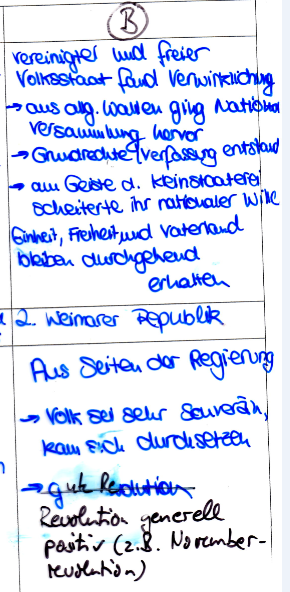 B
vereinigter und freier
Volksstaat fand Verwirklichung
→ aus allg. Wahlen ging National
versammlung hervor
→ Grundrechte/Verfassung entstand
→ am Geiste d. Kleinstaaterei
scheiterte ihr nationaler Wille
Einheit, Freiheit und Vaterland
bleiben durchgehend
erhalten
2. Weimarer Republik
Aus Seiten der Regierung
→ Volk sei sehr souverän,
kann sich durchsetzen
→ gute Revolution
Revolution generell
positiv (z.B. November-
revolution)